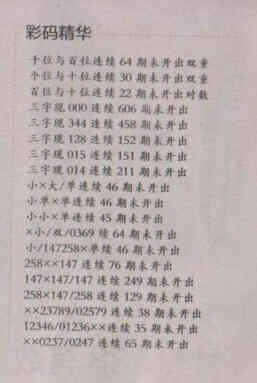 彩码精华
千位与百位连续 64 期未开出双重
个位与十位连续 30 期未开出双重
百位与十位连续 22 期未开出对数
三字现 000 连续 606 期未开出
三字现 344 连续 458 期未开出
三字现 128 连续 152 期未开出
三字现 015 连续 151 期未开出
三字现 014 连续 211 期未开出
小×大/单连续 46 期未开出
小单×单连续 46 期未开出
小小×单连续 45 期未开出
×小/双/0369 续 64 期未开出
小/147258×单续 46 期未开出
258××147 连续 76 期未开出
147×147/147 连续 249 期未开出
258×147/258 连续 129 期未开出
××23789/02579 连续 38 期未开出
12346/01236××连续 35 期未开出
××0237/0247 连续 65 期未开出